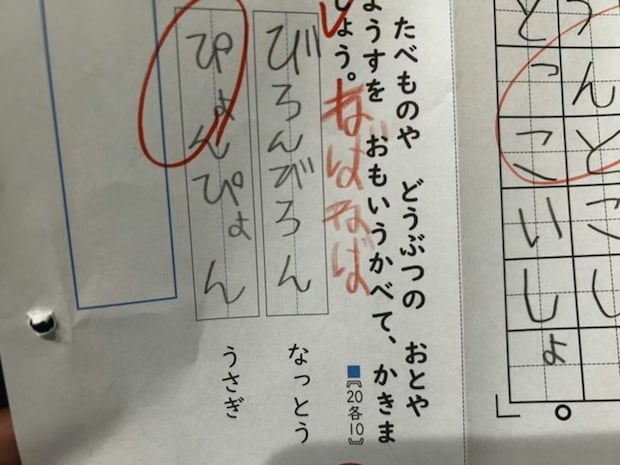 うんとこし
どっこいしょ
たべものや どうぶつの おとや
ようすを おもいうかべて、かきま
しょう。
〖20各10〗
ねばねば
びろんびろん
なっとう
ぴょんぴょん
うさぎ